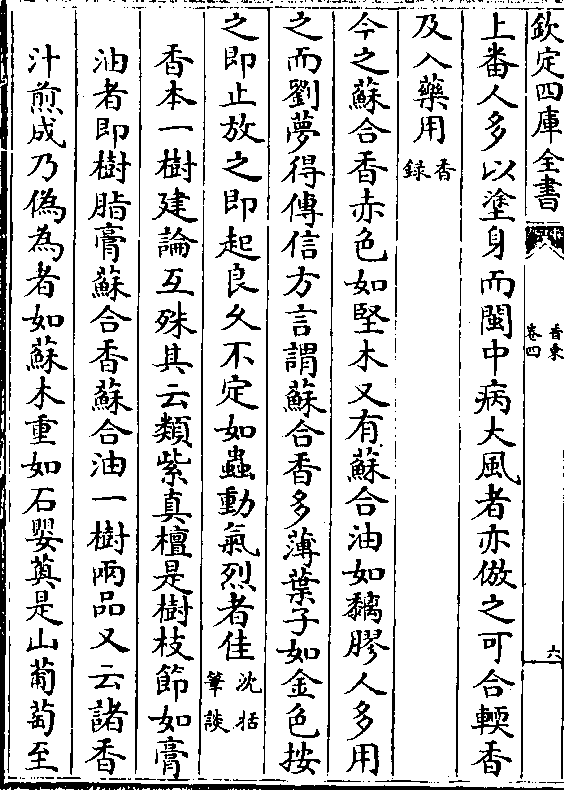 欽定四庫全書
香乘
卷四
六
上番人多以塗身而閩中病大風者亦倣之可合輭香
及入藥用香録
今之蘇合香赤色如堅木又有蘇合油如黐膠人多用
之而劉夢得傳信方言謂蘇合香多薄葉子如金色按
之即止放之即起良久不定如蟲動氣烈者佳沈括筆談
香本一樹建論互殊其云類紫真檀是樹枝節如膏
油者即樹脂膏蘇合香蘇合油一樹兩品又云諸香
汁煎成乃偽為者如蘇木重如石嬰薁是山葡萄至